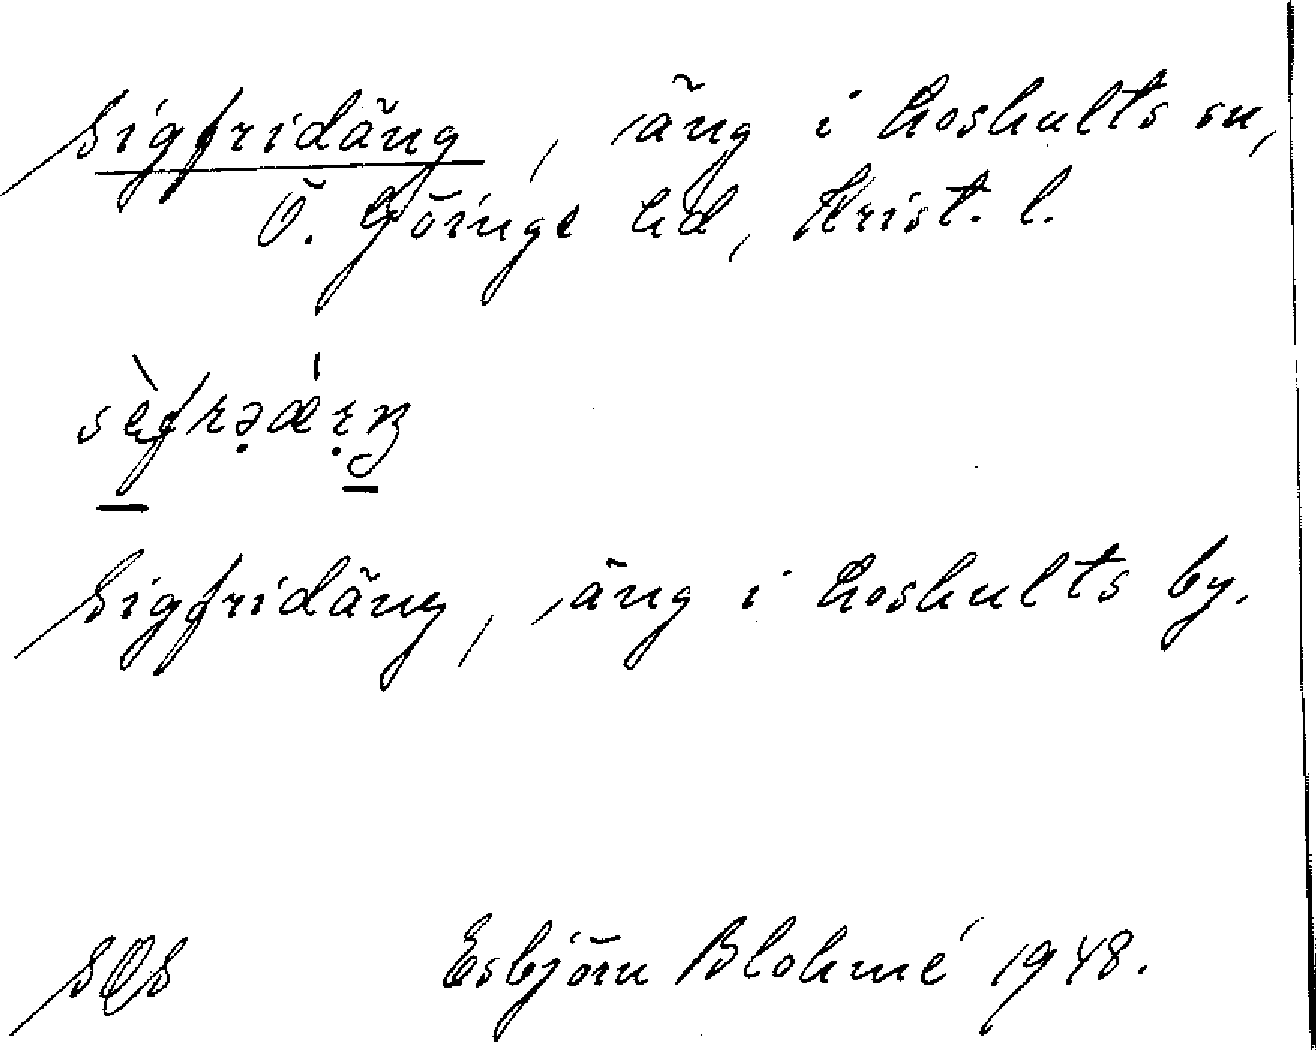 Sigfridäng, äng i Loshults sn,
Ö. Göinge hd, Krist. l.
Sigfridäng, äng i Loshults by.
Esbjörn Blohmé 1948.